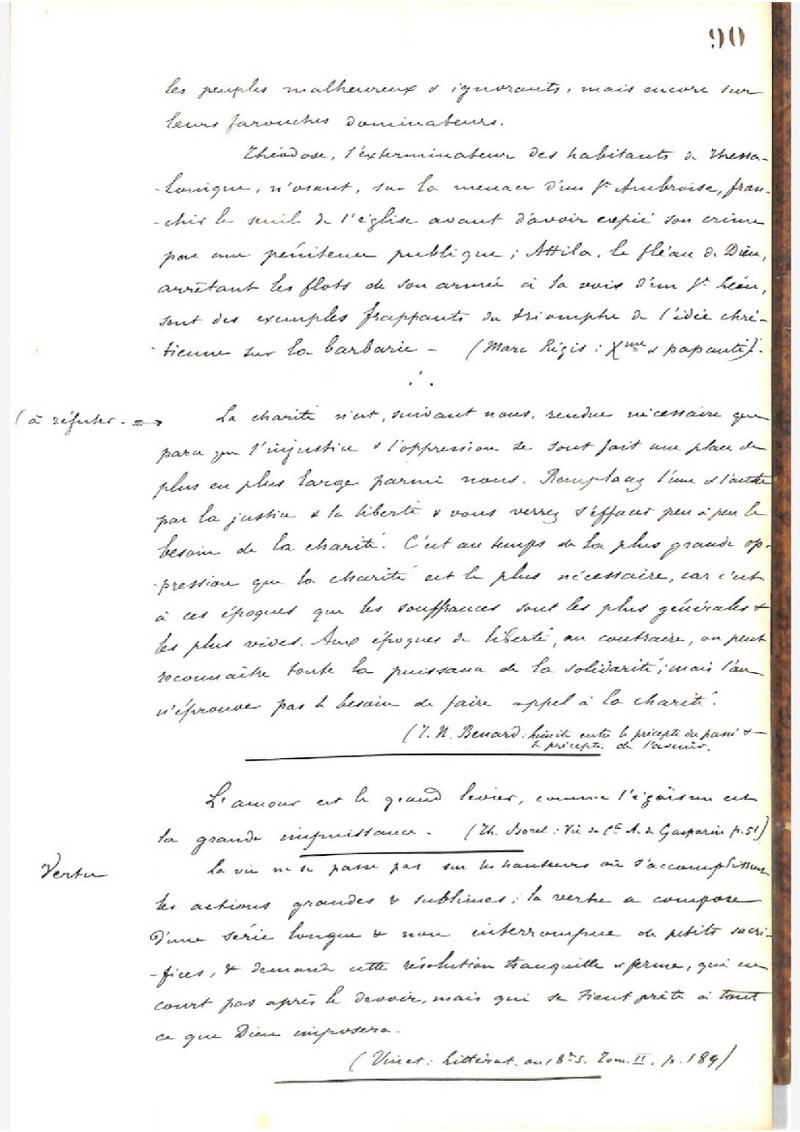 90
les peuples malheureux & ignorants, mais encore sur
leurs farouches dominateurs.
Théodose, l'exterminateur des habitants de Thessa-
-lonique, n'osant, sur la menace d'un St Ambroise, fran-
-chir le seuil de l'église avant d'avoir expié son crime
par une pénitence publique; Attila, le fléau de Dieu,
arrêtant les flots de son armée à la voix d'un St Léon,
sont des exemples frappants du triomphe de l'idée chré-
-tienne sur la barbarie - (Marc Régis: Xme & papauté).
(à réfuter. => La charité n'est, suivant nous, rendue nécessaire que
parce que l'injustice & l'oppression se sont fait une place de
plus en plus large parmi nous. Remplacez l'une & l'autre
par la justice & la liberté & vous verrez s'effacer peu à peu le
besoin de la charité. C'est au temps de la plus grande op-
-pression que la charité est le plus nécessaire, car c'est
à ces époques que les souffrances sont les plus générales &
les plus vives. Aux époques de liberté, au contraire, on peut
reconnaître toute la puissance de la solidarité; mais l'on
n'éprouve pas le besoin de faire appel à la charité.
(T. N. Benard: entre le précepte du passé &
le précepte de l'avenir.
L'amour est le grand levier, comme l'égoïsme est
la grande impuissance. (Th. Borel: Vie de Cte A. de Gasparin p. 51)
Vertu La vie ne se passe pas sur les hauteurs où s'accomplissent
les actions grandes & sublimes; la vertu se compose
d'une série longue & non interrompue de petits sacri-
-fices, & demande cette résolution tranquille & ferme, qui ne
court pas après le devoir, mais qui se tient prête à tout
ce que Dieu imposera.
(Vinet: Littérat. au 18e S. Tom. II. p. 189)